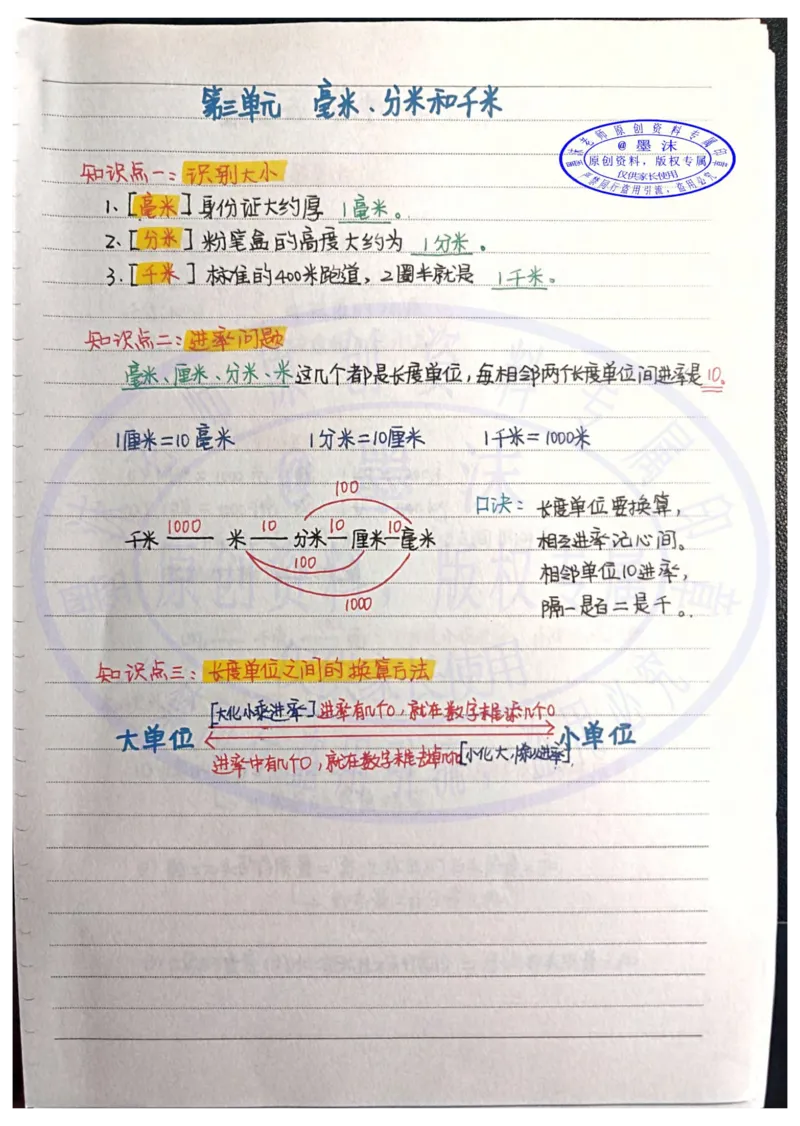 第三单元 毫米、分米和千米
墨沫老师原创资料专属印章
@墨沫
原创资料，版权专属
仅供家长使用
严禁同行盗用引流，盗用必究
知识点一：识别大小
1、[毫米]身份证大约厚 1毫米。
2、[分米]粉笔盒的高度大约为 1分米。
3、[千米]标准的400米跑道，2圈半就是 1千米。
知识点二：进率问题
毫米、厘米、分米、米这几个都是长度单位，每相邻两个长度单位间进率是10。
1厘米=10毫米 1分米=10厘米 1千米=1000米
100
千米 1000 米 10 分米 10 厘米 10 毫米
100
1000
口诀：长度单位要换算，
相互进率记心间。
相邻单位10进率，
隔一是百二是千。
知识点三：长度单位之间的换算方法
[大化小乘进率]进率有几个0，就在数字末尾添几个0
大单位 小单位
进率中有几个0，就在数字末尾去掉几个0[小化大，除以进率]